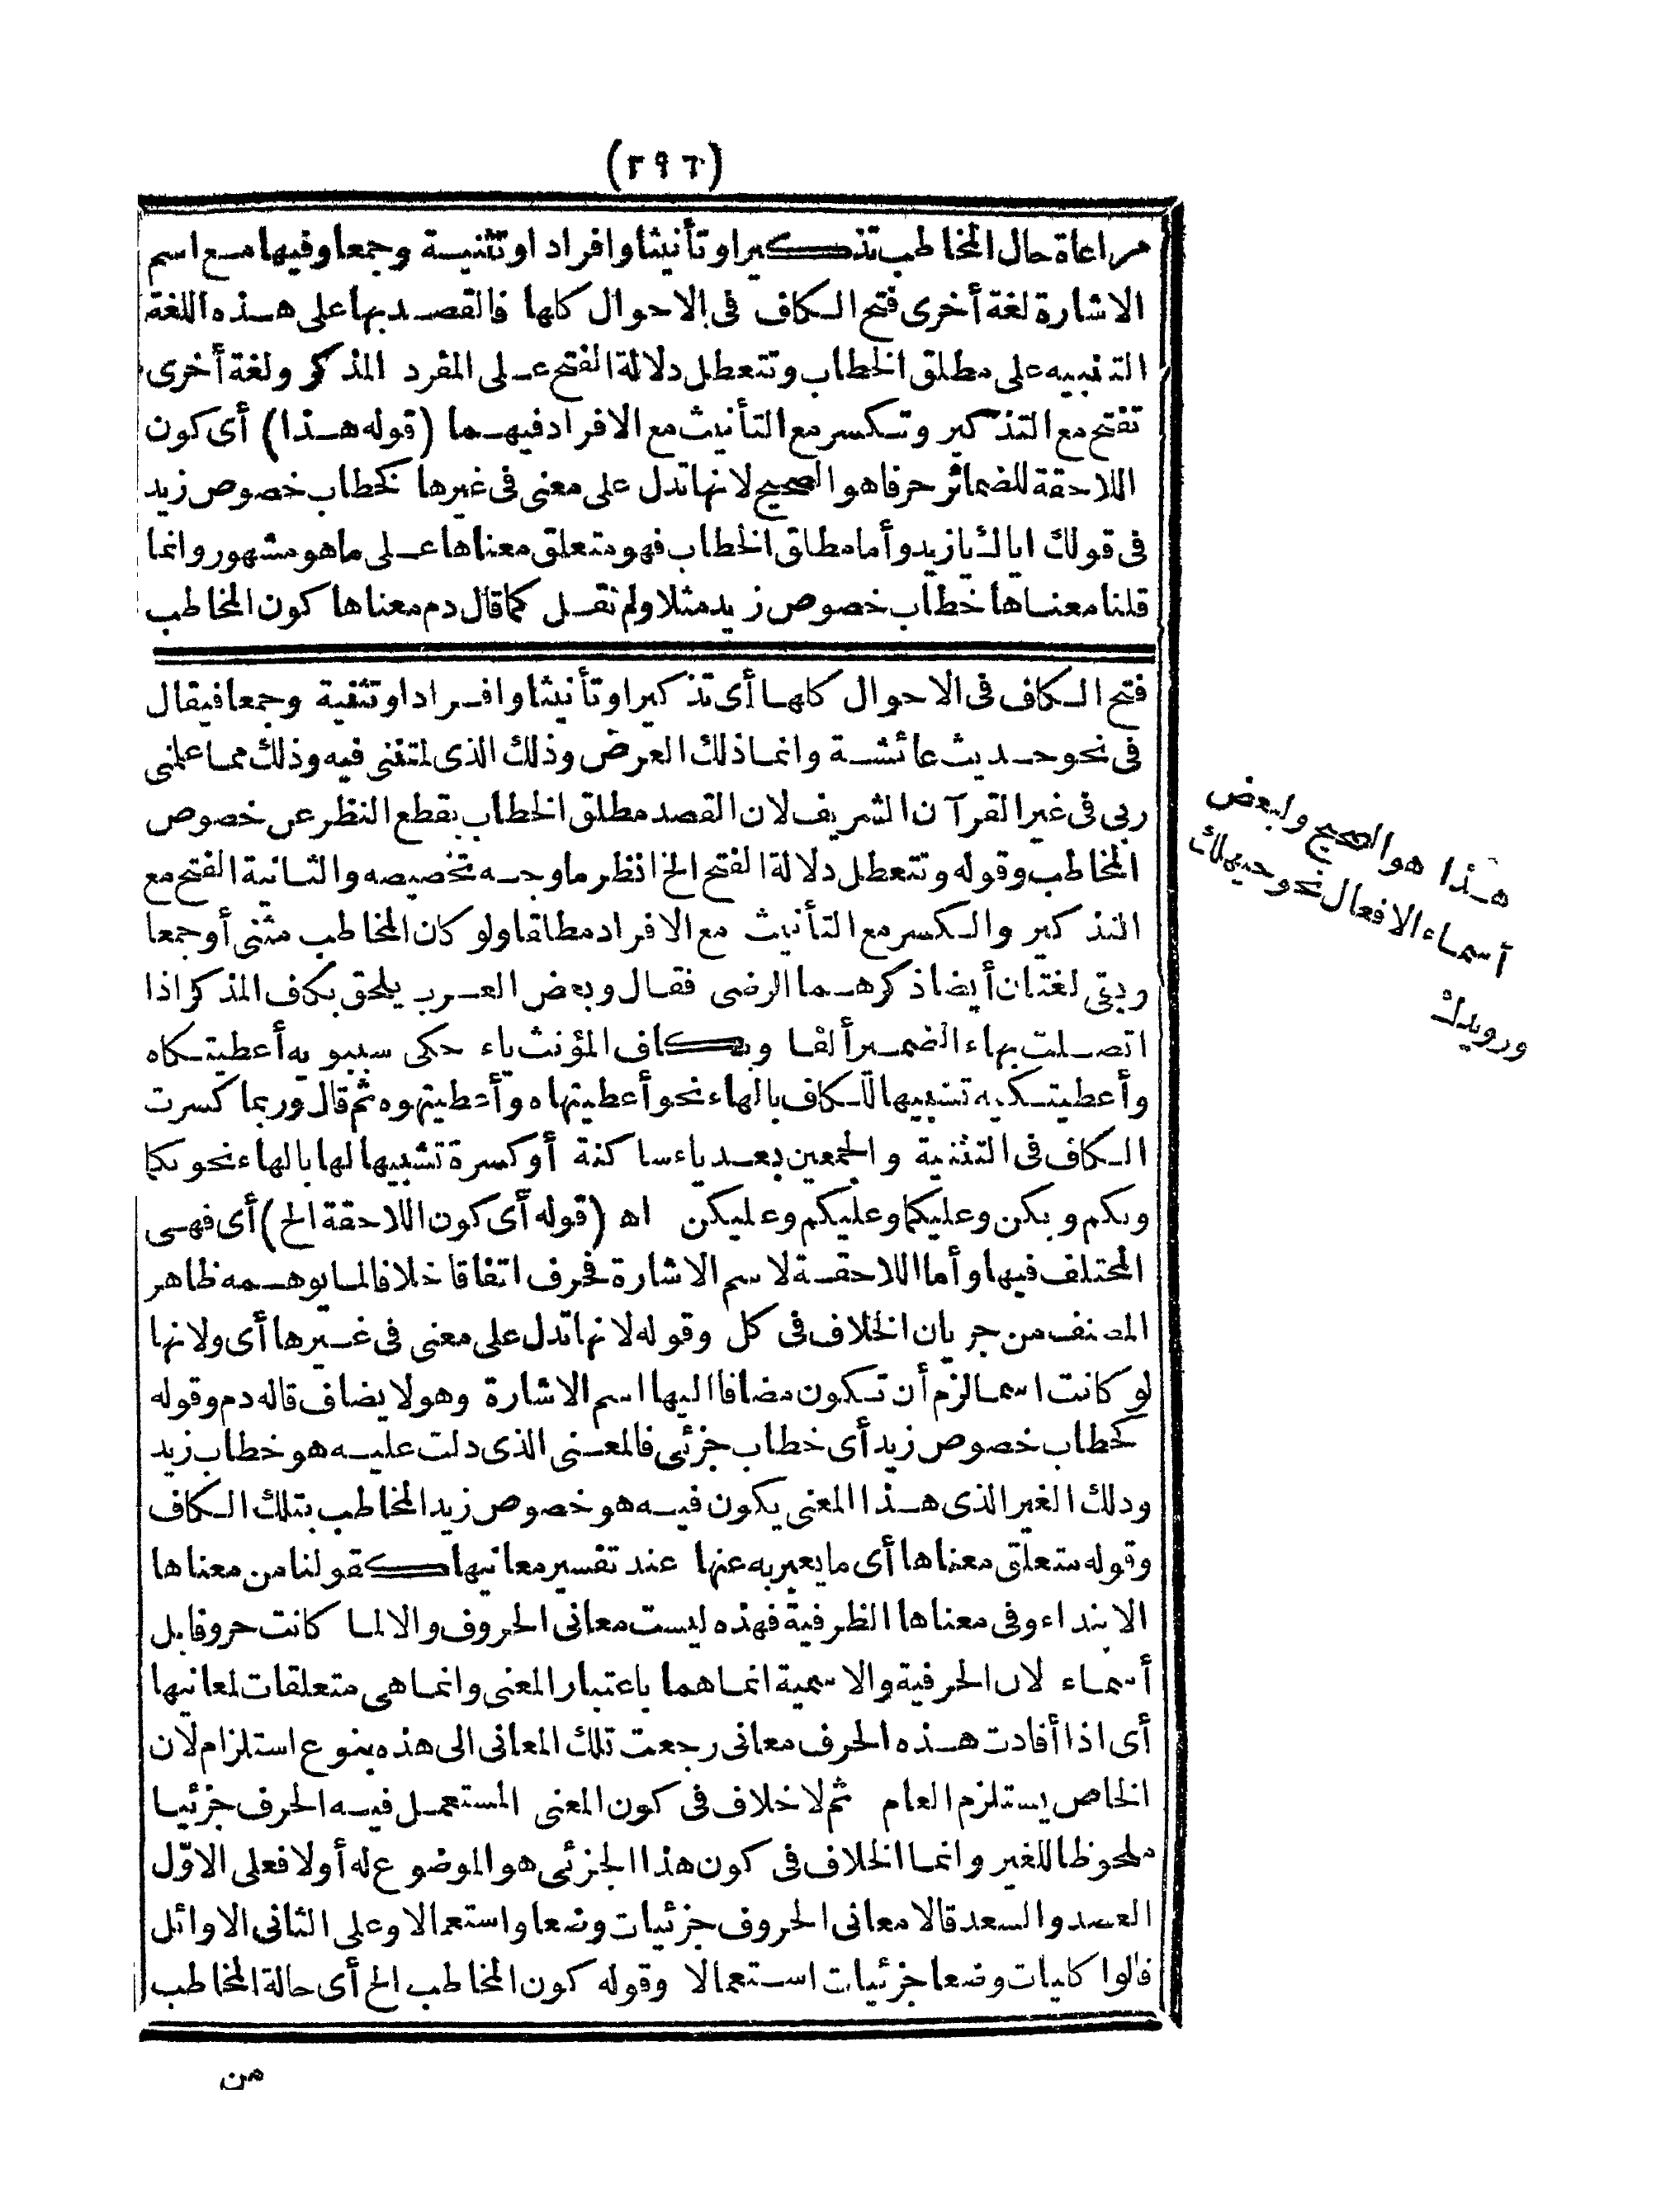 (٢٩٦)
مراعاة حال المخاطب تذكيرا وتأنيثا وافرادا وتثنية وجمعا وفيها مع اسم
الاشارة لغة أخرى فتح الكاف فى الاحوال كلها فالقصد بها على هذه اللغة
التنبيه على مطلق الخطاب وتتعطل دلالة الفتح على المفرد المذكر ولغة أخرى
تفتح مع التذكير وتكسر مع التأنيث مع الافراد فيهما (قوله هذا) أى كون
اللاحقة للضمائر حرفا هو الصحيح لانها تدل على معنى فى غيرها كخطاب خصوص زيد
فى قولك اياك يا زيد وأما مطلق الخطاب فهو متعلق معناها على ما هو مشهور وانما
قلنا معناها خطاب خصوص زيد مثلا ولم نقل كما قال دم معناها كون المخاطب
هذا هو الصحيح ولبعض
أسماء الافعال نحو حيهلك
ورويدك
فتح الكاف فى الاحوال كلها أى تذكيرا وتأنيثا وافرادا وتثنية وجمعا فيقال
فى نحو حديث عائشة وانما ذلك العرض وذلك الذى لمتننى فيه وذلك مما علمنى
ربى فى غير القرآن الشريف لان القصد مطلق الخطاب بقطع النظر عن خصوص
المخاطب وقوله وتتعطل دلالة الفتح الخ انظر ما وجه تخصيصه والثانية الفتح مع
التذكير والكسر مع التأنيث مع الافراد مطلقا ولو كان المخاطب مثنى أو جمعا
وبقى لغتان أيضا ذكرهما الرضى فقال وبعض العرب يلحق بكاف المذكر اذا
اتصلت بهاء الضمير ألفا وبكاف المؤنث ياء حكى سيبويه أعطيتكاه
وأعطيتكيه تشبيها للكاف بالهاء نحو أعطيتهاه وأعطيتهوه ثم قال وربما كسرت
الكاف فى التثنية والجمعين بعد ياء ساكنة أو كسرة تشبيها لها بالهاء نحو بكما
وبكم وبكن وعليكما وعليكم وعليكن اه (قوله أى كون اللاحقة الخ) أى فهى
المختلف فيها وأما اللاحقة لاسم الاشارة فحرف اتفاقا خلافا لما يوهمه ظاهر
المصنف من جريان الخلاف فى كل وقوله لانها تدل على معنى فى غيرها أى ولانها
لو كانت اسما لزم أن تكون مضافا اليها اسم الاشارة وهو لا يضاف قاله دم وقوله
كخطاب خصوص زيد أى خطاب جزئى فالمعنى الذى دلت عليه هو خطاب زيد
وذلك الغير الذى هذا المعنى يكون فيه هو خصوص زيد المخاطب بتلك الكاف
وقوله متعلق معناها أى ما يعبر به عنها عند تفسير معانيها كقولنا من معناها
الابتداء وفى معناها الظرفية فهذه ليست معانى الحروف والا لما كانت حروفا بل
أسماء لان الحرفية والاسمية انما هما باعتبار المعنى وانما هى متعلقات لمعانيها
أى اذا أفادت هذه الحرف معانى رجعت تلك المعانى الى هذه بنوع استلزام لان
الخاص يستلزم العام ثم لا خلاف فى كون المعنى المستعمل فيه الحرف جزئيا
ملحوظا للغير وانما الخلاف فى كون هذا الجزئى هو الموضوع له أولا فعلى الاوّل
العضد والسعد قالا معانى الحروف جزئيات وضعا واستعمالا وعلى الثانى الاوائل
قالوا كليات وضعا جزئيات استعمالا وقوله كون المخاطب الخ أى حالة المخاطب
من